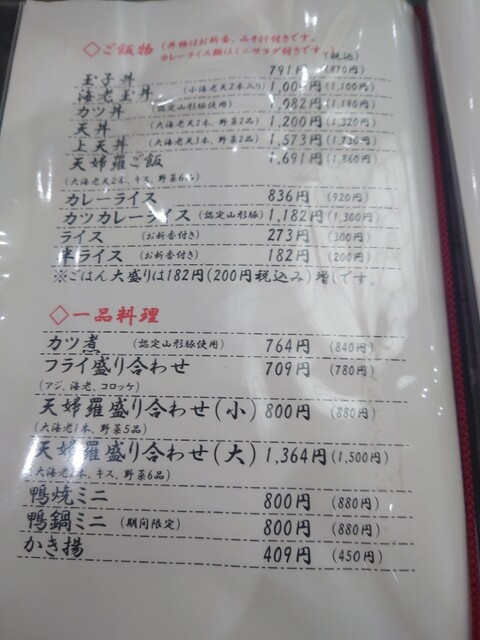 ◇ご飯物 (丼物はお新香、みそ汁付きです。
カレーライス類はミニサラダ付きです。)
(税込)
玉子丼 791円 (870円)
海老玉丼 (小海老天2本入り) 1,00 (1,100円)
カツ丼 (認定山形豚使用) 1,082円 (1,190円)
天丼 (大海老天2本、野菜2品) 1,200円 (1,320円)
上天丼 (大海老天3本、野菜2品) 1,573円 (1,730円)
天婦羅ご飯 1,691円 (1,860円)
(大海老天2本、キス、野菜6品)
カレーライス 836円 (920円)
カツカレーライス (認定山形豚) 1,182円 (1,300円)
ライス (お新香付き) 273円 (300円)
半ライス (お新香付き) 182円 (200円)
※ごはん大盛りは182円(200円税込み)増しです。
◇一品料理
カツ煮 (認定山形豚使用) 764円 (840円)
フライ盛り合わせ 709円 (780円)
(アジ、海老、コロッケ)
天婦羅盛り合わせ(小) 800円 (880円)
(大海老1本、野菜5品)
天婦羅盛り合わせ(大) 1,364円 (1,500円)
(大海老2本、キス、野菜6品)
鴨焼ミニ 800円 (880円)
鴨鍋ミニ (期間限定) 800円 (880円)
かき揚 409円 (450円)